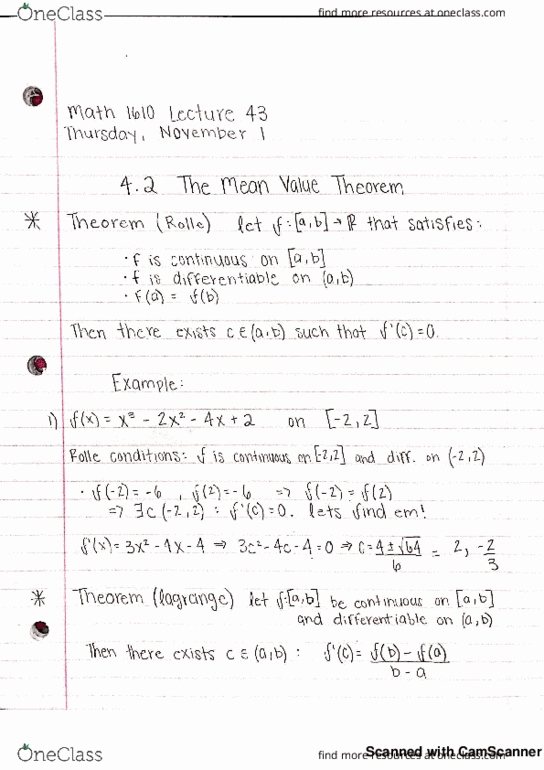 OneClass
find more resources at oneclass.com
Math 1610 Lecture 43
Thursday, November 1
4.2 The Mean Value Theorem
* Theorem (Rolle) let f:[a,b]→ℝ that satisfies:
· f is continuous on [a,b]
· f is differentiable on (a,b)
· f(a) = f(b)
Then there exists c∈(a,b) such that f'(c)=0.
Example:
1) f(x) = x³ - 2x² - 4x + 2 on [-2,2]
Rolle conditions: f is continuous on [-2,2] and diff. on (-2,2)
· f(-2) = -6 , f(2) = -6 => f(-2) = f(2)
=> ∃c (-2,2) : f'(c)=0. lets find em!
f'(x) = 3x² - 4x - 4 => 3c² - 4c - 4 = 0 => c = 4±√64/6 = 2, -2/3
* Theorem (lagrange) let f:[a,b] be continuous on [a,b]
and differentiable on (a,b)
Then there exists c ∈ (a,b) : f'(c) = f(b) - f(a)/b - a
OneClass
find more resources at oneclass.com
Scanned with CamScanner